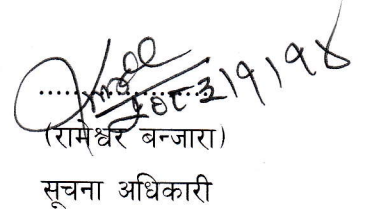 (रामेश्वर बन्जारा)
सूचना अधिकारी